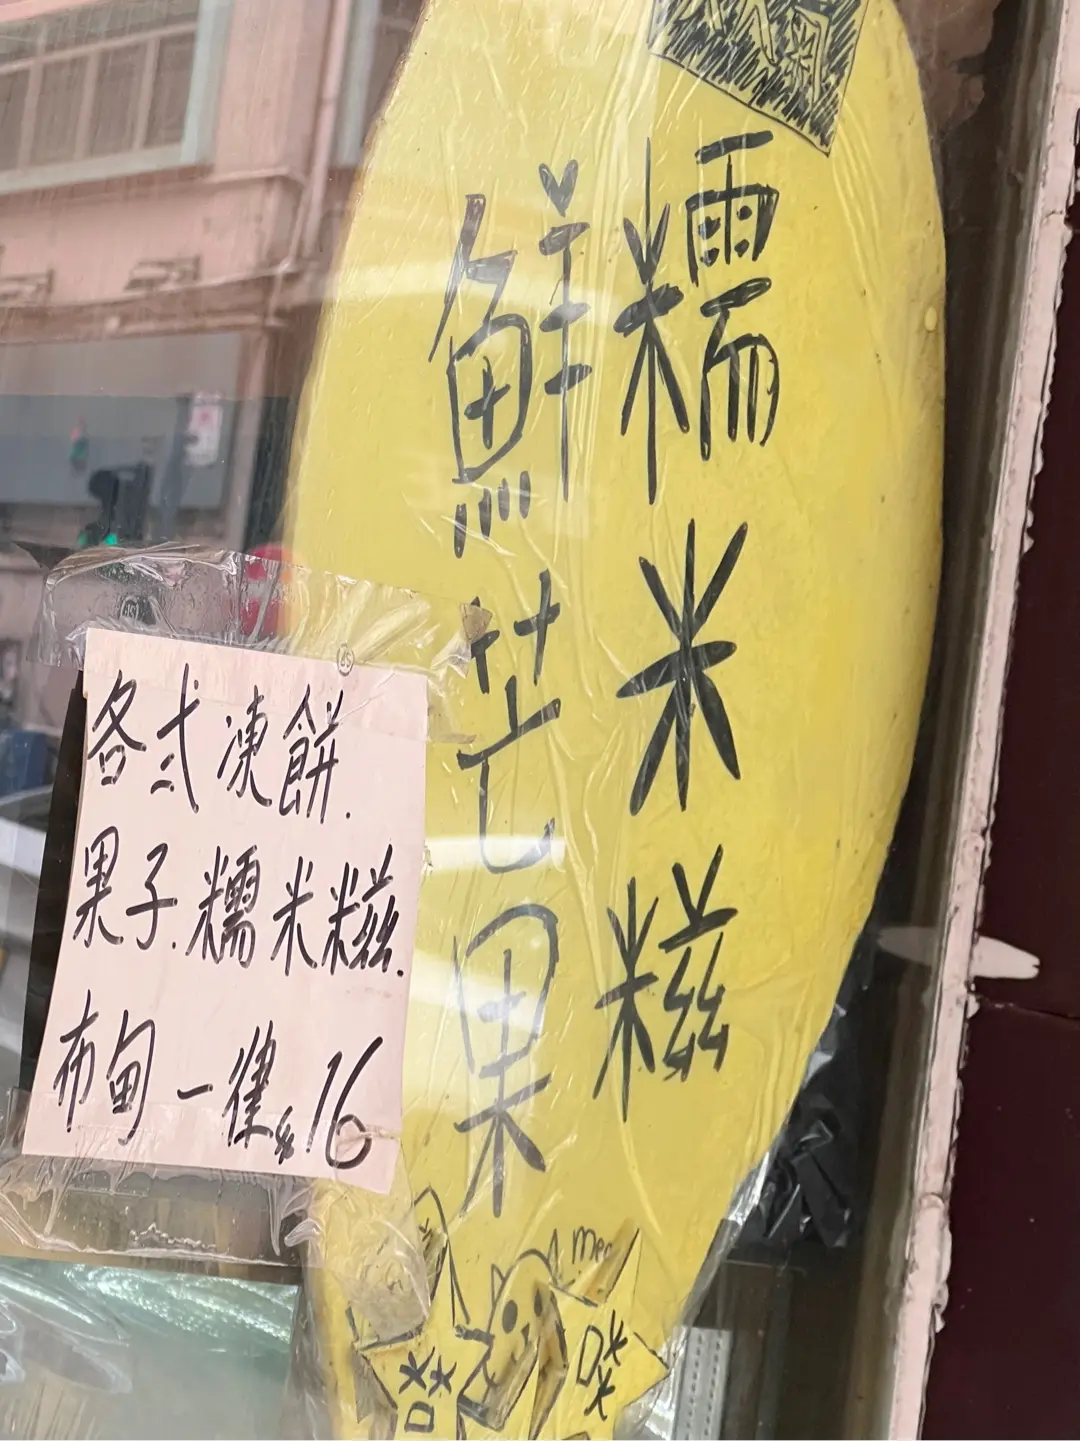 人氣
糯米糍
鮮芒果
各式凍餅.
果子.糯米糍.
布甸一律$16